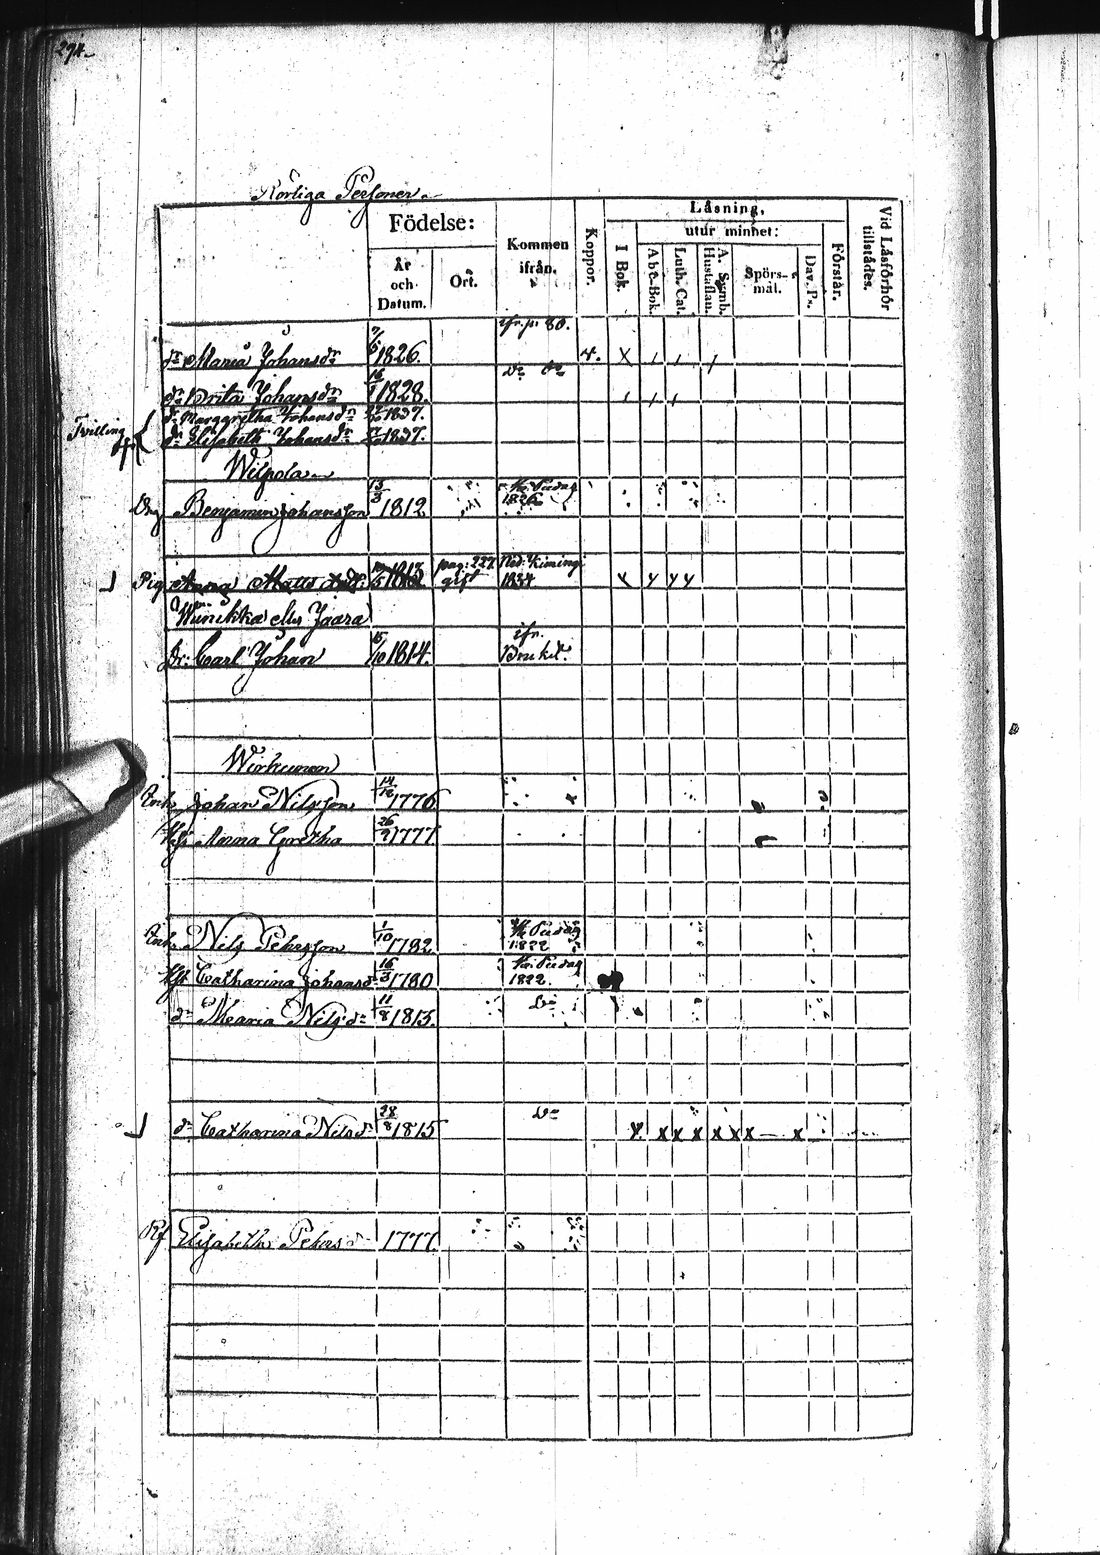 294.
Rörliga Personer.
Födelse:
År och Datum.
Ort.
Kommen ifrån.
Koppor.
Läsning,
utur minnet:
I Bok.
Abc-Bok.
Luth. Cat.
A. Symb. Hustaflan.
Spörsmål.
Dav. Ps.
Förstår.
Vid Läsförhör tillstådes.
ifr. p. 80.
dr Maria Johansdr 7/6 1826. v. x / / /
dr Brita Johansdr 16/1 1828. do do / / /
Tvilling
dr Marggretha Johansdr 1837.
dr Elisabeth Johansdr 1837.
Wilpola
Drg Benjamin Johansson 13/3 1812 1826
Pig Anna Matts 1813 pag: 227 gift Ned: Kimingi 1834 x y y y
Wunikka eller Jaara
Dr: Carl Johan 15/10 1814. ifr. Bruket.
Wirkunen
Inh. Johan Nilsson 14/12 1776
Hu Anna Gretha 26/7 1777.
Inh. Nils Pehrsson 1/10 1782. 1822
Hu Catharina Johansdr 16/3 1780 1822.
dr Maria Nilsdr 11/8 1813. Do
dr Catharina Nilsdr 28/8 1815 Do x x x x x x x — x
Elisabeth Pehrsdr 1777.